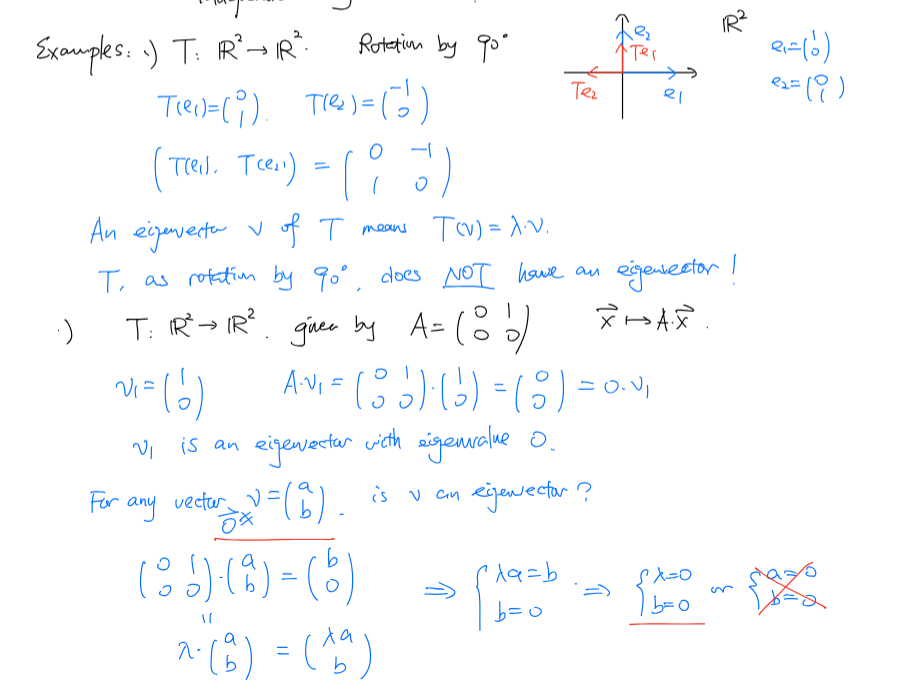 Examples: ·) T: ℝ² → ℝ². Rotation by 90°
e₂
Te₁
Te₂
e₁
ℝ²
e₁ = (1 0)
e₂ = (0 1)
T(e₁) = (0 1). T(e₂) = (-1 0)
(T(e₁), T(e₂)) = (0 -1
1 0)
An eigenvector v of T means T(v) = λ·v.
T, as rotation by 90°, does NOT have an eigenvector!
·) T: ℝ² → ℝ². given by A = (0 1
0 0) x⃗ ↦ A·x⃗.
v₁ = (1 0) A·v₁ = (0 1
0 0)·(1 0) = (0 0) = 0·v₁
v₁ is an eigenvector with eigenvalue 0.
For any vector v = (a b). is v an eigenvector?
(0 1
0 0)·(a b) = (b 0) ⇒ {λa = b
b = 0 ⇒ {λ=0
b=0 or {a=0
b=0
=
λ·(a b) = (λa b)